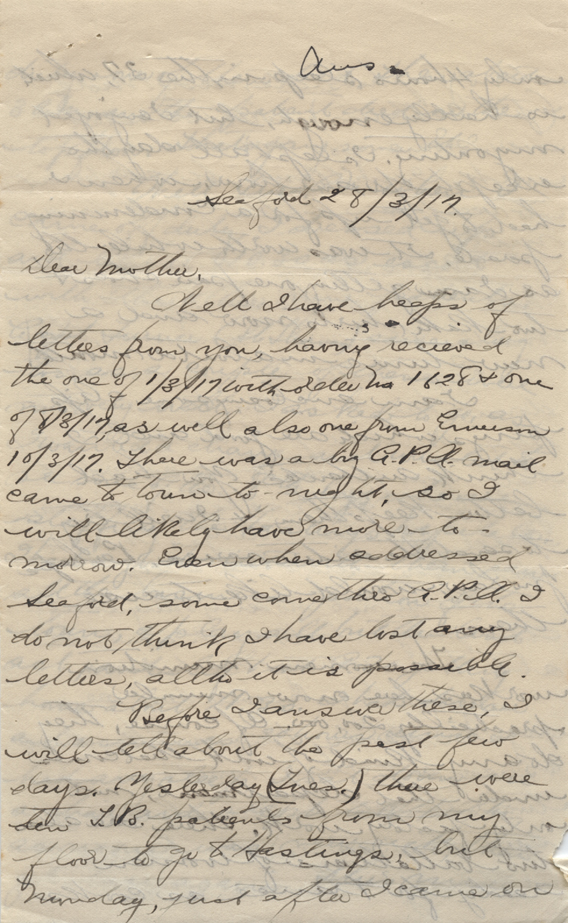 Ans.
Seaford 28/3/17.
Dear Mother,
Well I have heaps of
letters from you, having recieved
the one of 1/3/17 with order No 1628 & one
of 8/3/17, as well also one from Emerson
10/3/17. There was a big A.P.O. mail
came to town to-night, so I
will likely have more to-
morrow. Even when addressed
Seaford, some come thro A.P.O. I
do not think I have lost any
letters, altho it is possible.
Before I answer these, I
will tell about the past few
days. Yesterday (Tues.) there were
ten T.B. patients from my
floor to go to Hastings, but
Monday, just after I came on